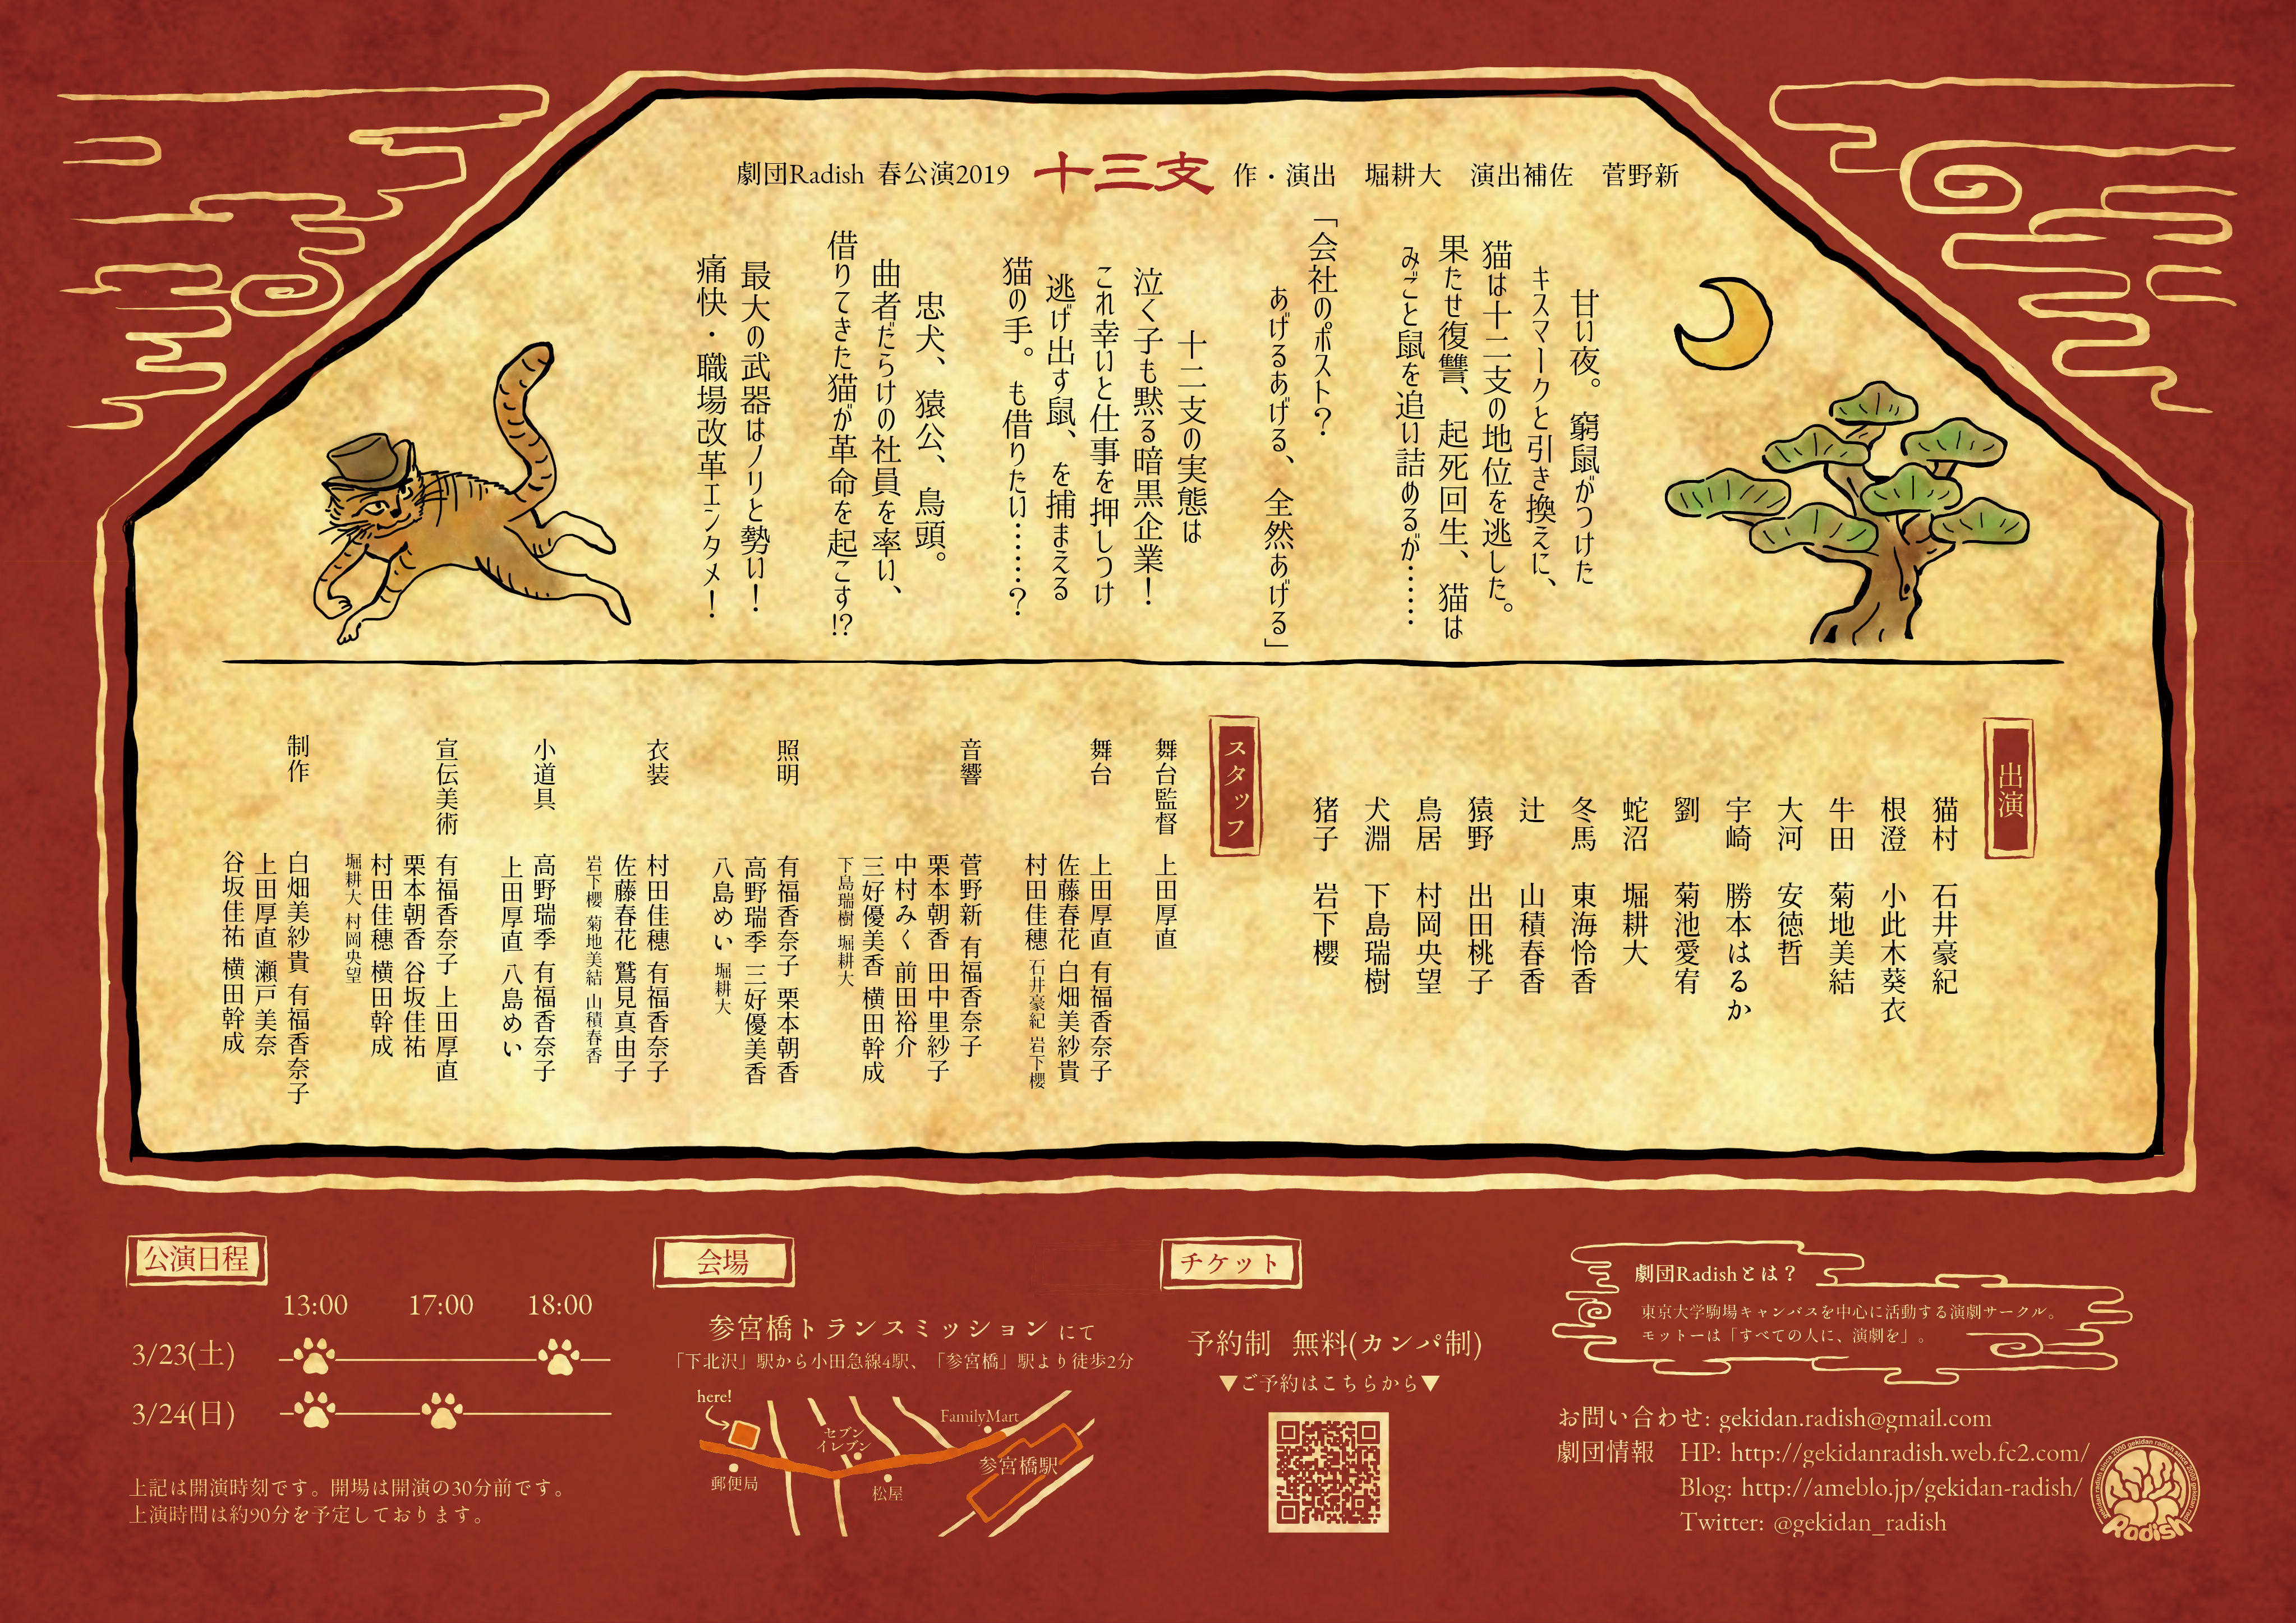 劇団Radish 春公演2019 十三支 作・演出 堀耕大 演出補佐 菅野新
甘い夜。窮鼠がつけた
キスマークと引き換えに、
猫は十二支の地位を逃した。
果たせ復讐、起死回生、猫は
みごと鼠を追い詰めるが……
「会社のポスト?
あげるあげる、全然あげる」
十二支の実態は
泣く子も黙る暗黒企業!
これ幸いと仕事を押しつけ
逃げ出す鼠、を捕まえる
猫の手。も借りたい……?
忠犬、猿公、鳥頭。
曲者だらけの社員を率い、
借りてきた猫が革命を起こす!?
最大の武器はノリと勢い!
痛快・職場改革エンタメ!
出演
猫村 石井豪紀
根澄 小此木葵衣
牛田 菊地美結
大河 安徳哲
宇崎 勝本はるか
劉 菊池愛宥
蛇沼 堀耕大
冬馬 東海怜香
辻 山積春香
猿野 出田桃子
鳥居 村岡央望
犬淵 下島瑞樹
猪子 岩下櫻
スタッフ
舞台監督 上田厚直
舞台 上田厚直 有福香奈子
佐藤春花 白畑美紗貴
村田佳穂 石井豪紀 岩下櫻
音響 菅野新 有福香奈子
栗本朝香 田中里紗子
中村みく 前田裕介
三好優美香 横田幹成
下島瑞樹 堀耕大
照明 有福香奈子 栗本朝香
高野瑞季 三好優美香
八島めい 堀耕大
衣装 村田佳穂 有福香奈子
佐藤春花 鷲見真由子
岩下櫻 菊地美結 山積春香
小道具 高野瑞季 有福香奈子
上田厚直 八島めい
宣伝美術 有福香奈子 上田厚直
栗本朝香 谷坂佳祐
村田佳穂 横田幹成
堀耕大 村岡央望
制作 白畑美紗貴 有福香奈子
上田厚直 瀬戸美奈
谷坂佳祐 横田幹成
公演日程
13:00 17:00 18:00
3/23(土)
3/24(日)
上記は開演時刻です。開場は開演の30分前です。
上演時間は約90分を予定しております。
会場
参宮橋トランスミッション にて
「下北沢」駅から小田急線4駅、「参宮橋」駅より徒歩2分
here!
セブン
イレブン
FamilyMart
郵便局
松屋
参宮橋駅
チケット
予約制 無料(カンパ制)
▼ご予約はこちらから▼
劇団Radishとは?
東京大学駒場キャンパスを中心に活動する演劇サークル。
モットーは「すべての人に、演劇を」。
お問い合わせ: gekidan.radish@gmail.com
劇団情報 HP: http://gekidanradish.web.fc2.com/
Blog: http://ameblo.jp/gekidan-radish/
Twitter: @gekidan_radish
Radish